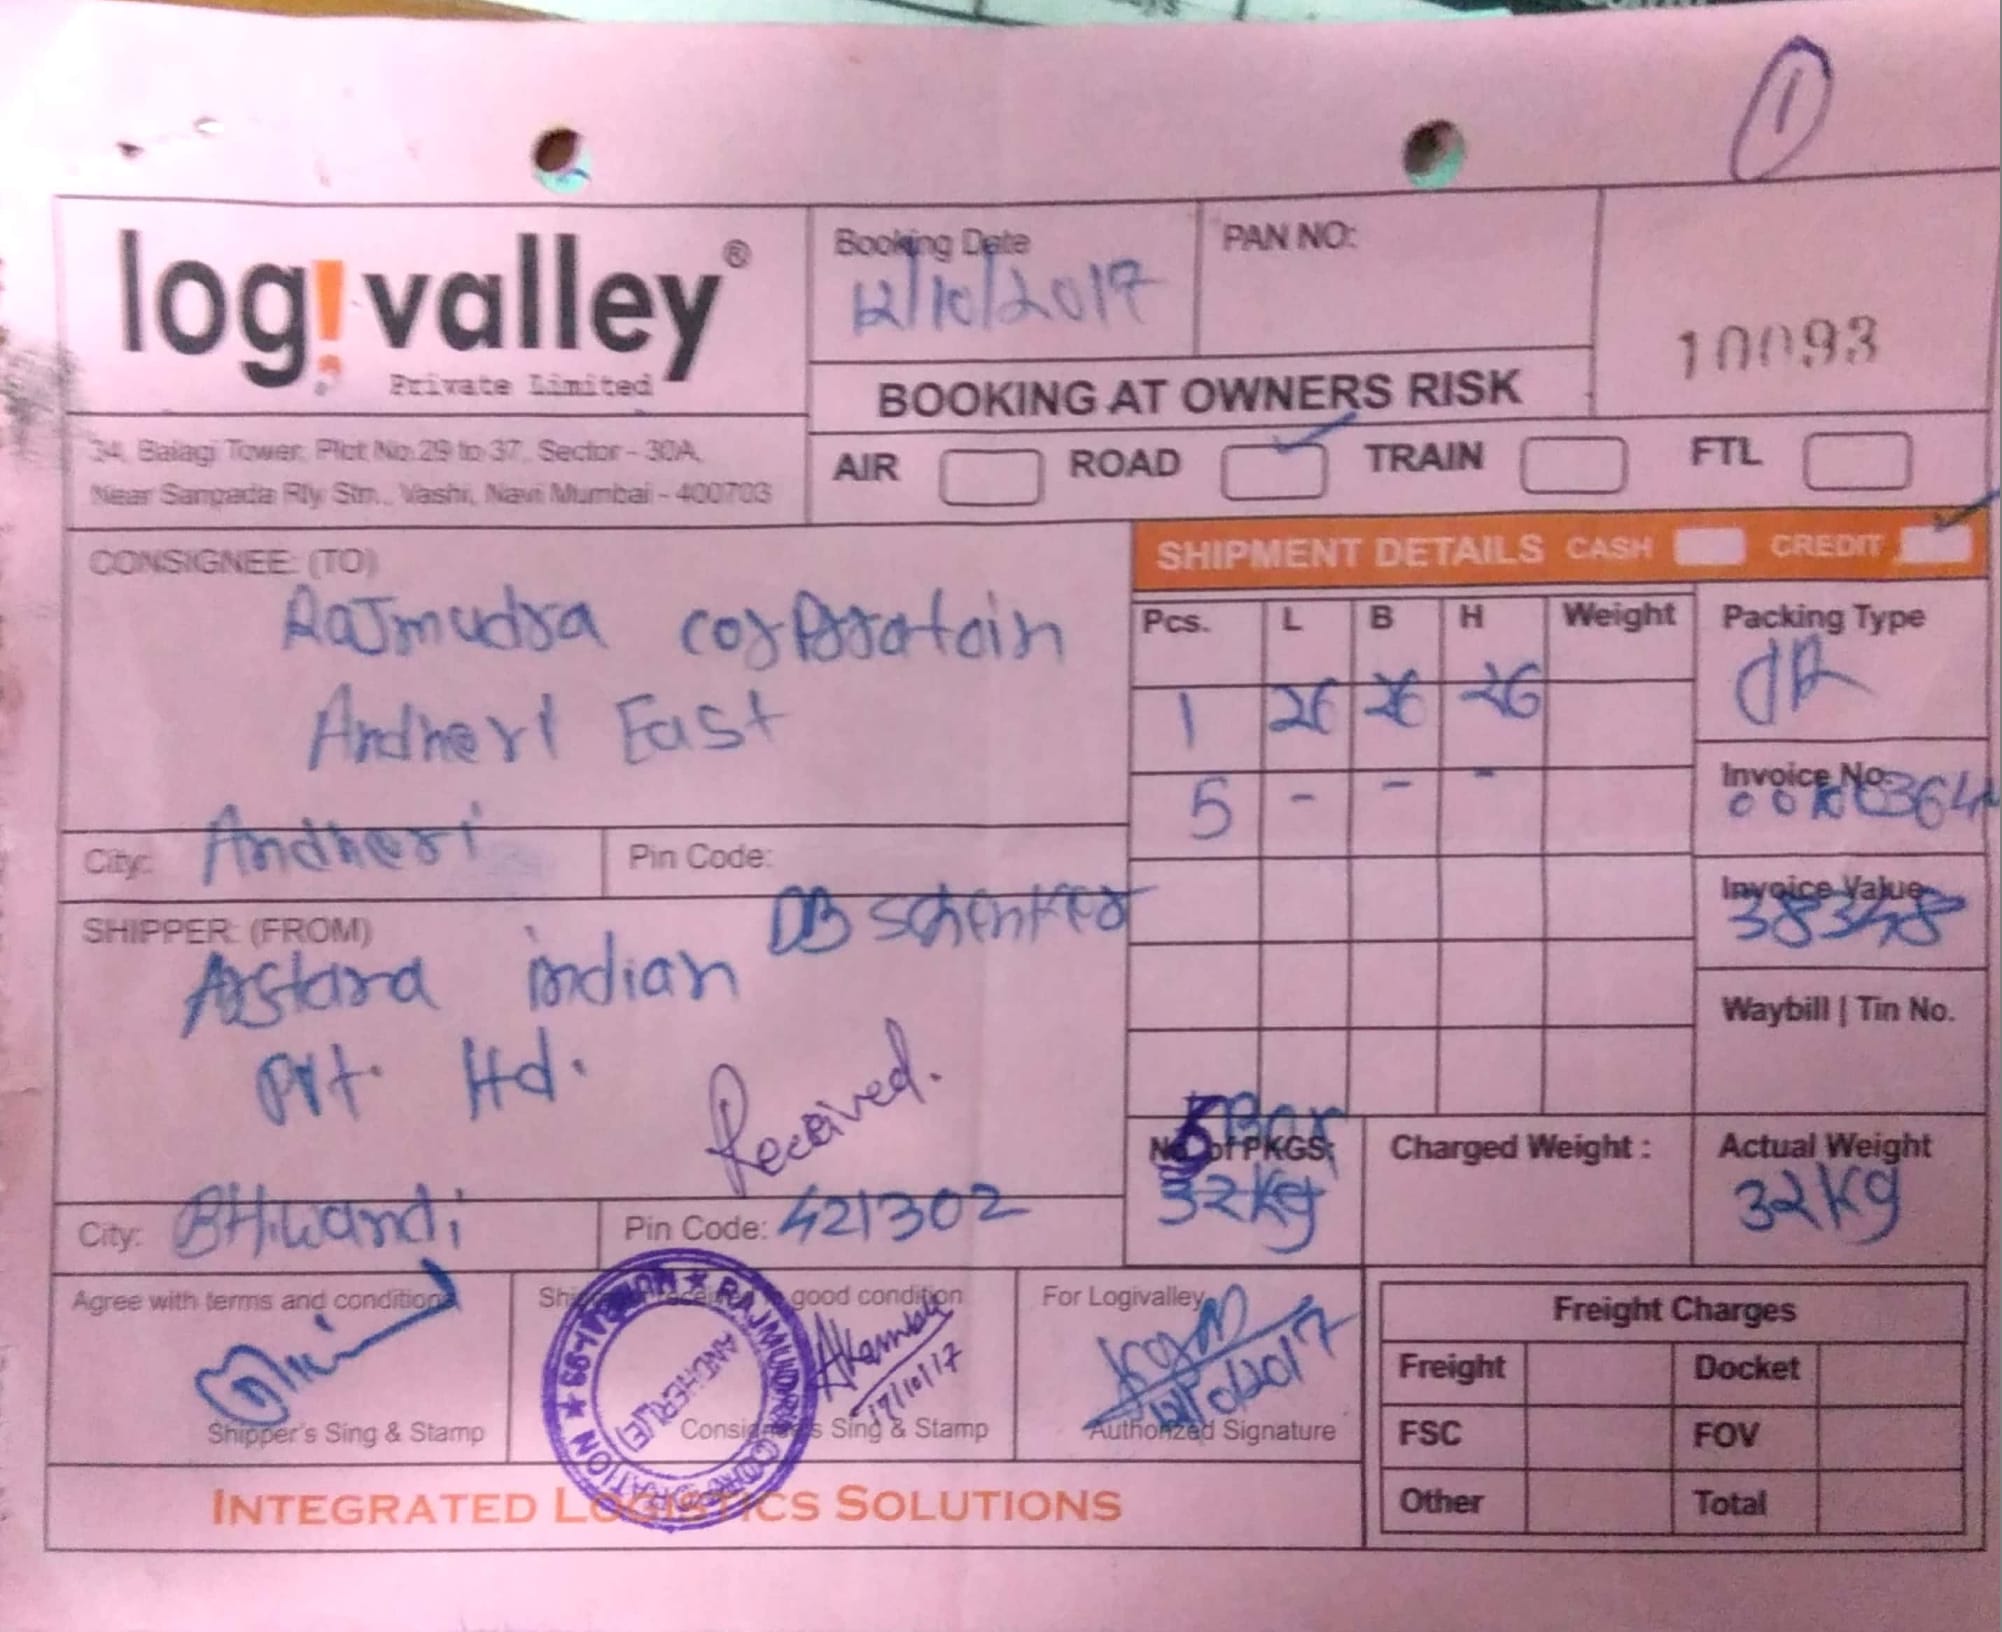 1
log!valley®
Private Limited
34, Balagi Tower, Plot No.29 to 37, Sector - 30A,
Near Sanpada Rly Stn., Vashi, Navi Mumbai - 400703
Booking Date
12/10/2017
PAN NO:
10093
BOOKING AT OWNERS RISK
AIR ROAD TRAIN FTL
CONSIGNEE: (TO)
Rajmudra corporatoin
Andheri East
City: Andheri Pin Code:
SHIPPER: (FROM)
DB Schenker
indian
Pvt. ltd.
Received.
City: BHiwandi Pin Code: 421302
SHIPMENT DETAILS CASH CREDIT
Pcs. L B H Weight
1 26 26 26
5 - - -
Packing Type
Invoice No.
Invoice Value
38348
Waybill | Tin No.
No. of PKGS:
5 Box
32kg
Charged Weight :
Actual Weight
32kg
Agree with terms and conditions
Shipper's Sing & Stamp
good condition
17/10/17
Consignee's Sing & Stamp
RAJMUDRA CORPORATION
ANDHERI/E
For Logivalley
12/10/2017
Authorized Signature
Freight Charges
Freight Docket
FSC FOV
Other Total
INTEGRATED LOGISTICS SOLUTIONS